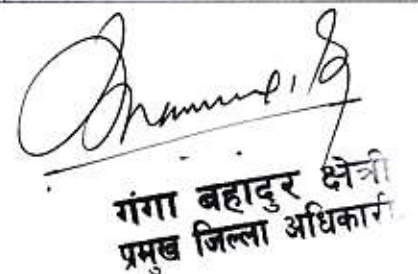 गंगा बहादुर क्षेत्री
प्रमुख जिल्ला अधिकारी